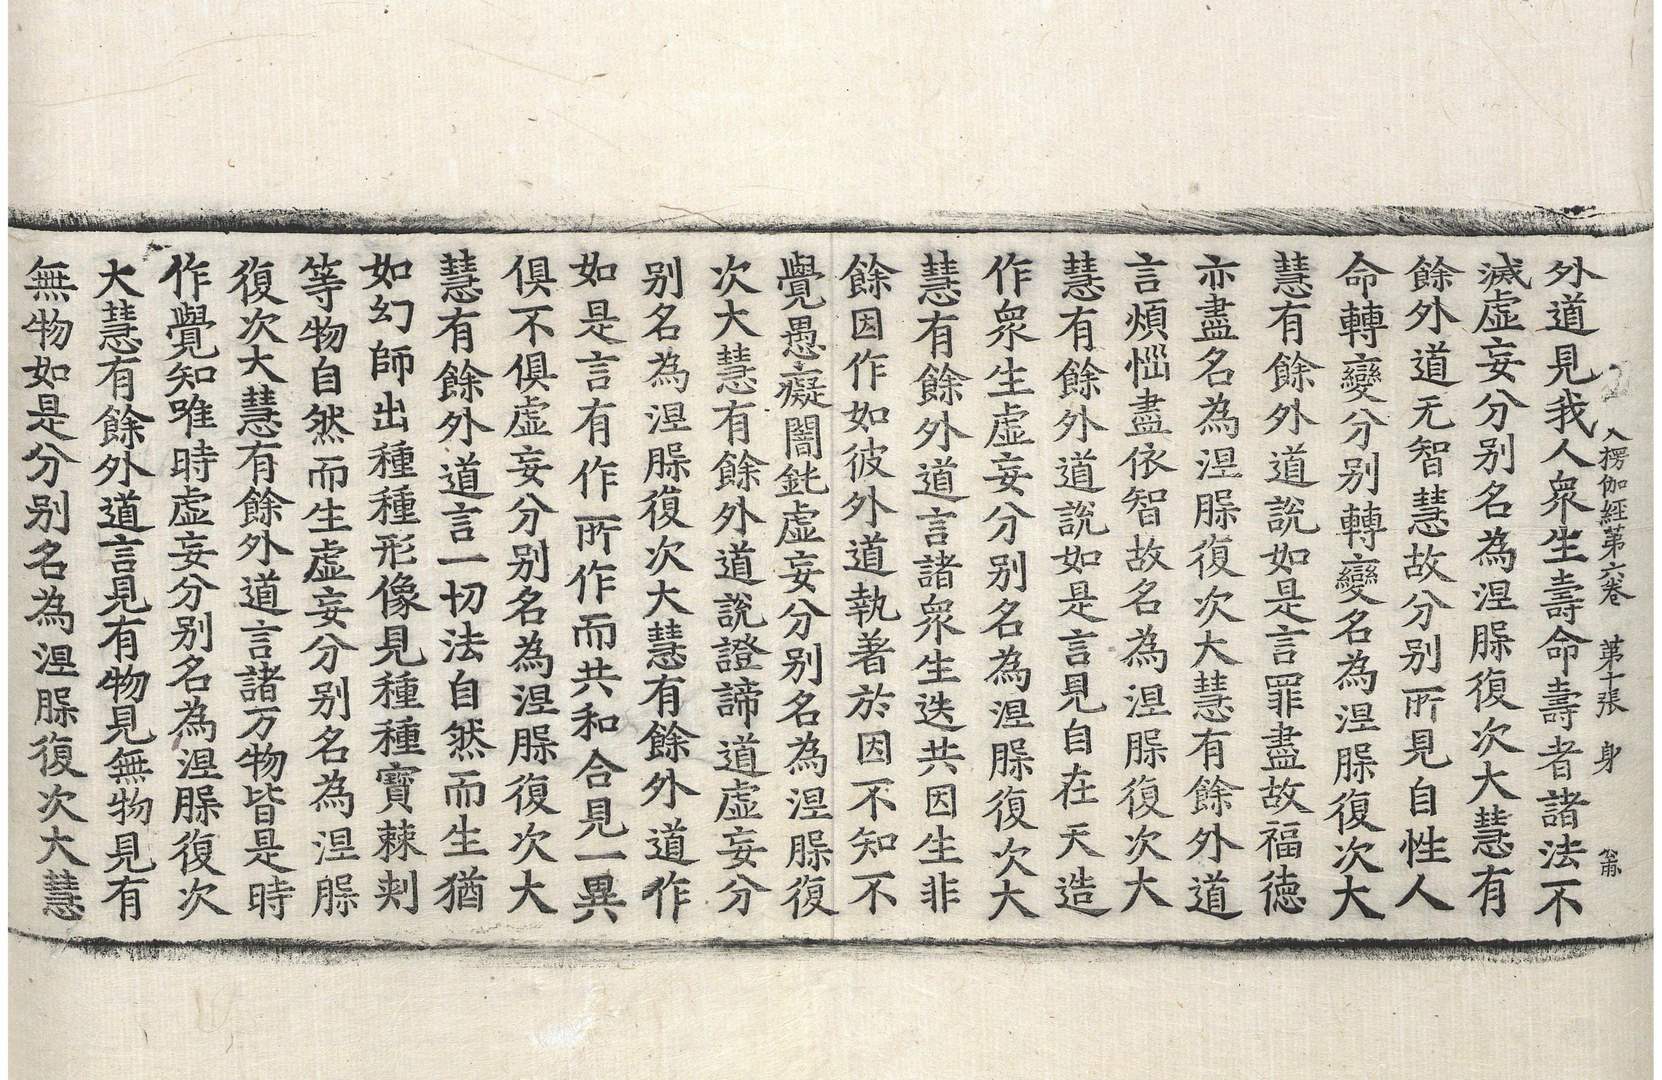 入楞伽經第六卷 第十張 身 𦘕
外道見我人衆生壽命壽者諸法不
滅虛妄分别名為涅槃復次大慧有
餘外道无智慧故分别所見自性人
命轉變分别轉變名為涅槃復次大
慧有餘外道說如是言罪盡故福德
亦盡名為涅槃復次大慧有餘外道
言煩惱盡依智故名為涅槃復次大
慧有餘外道說如是言見自在天造
作衆生虛妄分别名為涅槃復次大
慧有餘外道言諸衆生迭共因生非
餘因作如彼外道執著於因不知不
覺愚癡闇鈍虛妄分别名為涅槃復
次大慧有餘外道說證諦道虛妄分
别名為涅槃復次大慧有餘外道作
如是言有作所作而共和合見一異
俱不俱虛妄分别名為涅槃復次大
慧有餘外道言一切法自然而生猶
如幻師出種種形像見種種寶棘刺
等物自然而生虛妄分别名為涅槃
復次大慧有餘外道言諸万物皆是時
作覺知唯時虛妄分别名為涅槃復次
大慧有餘外道言見有物見無物見有
無物如是分别名為涅槃復次大慧